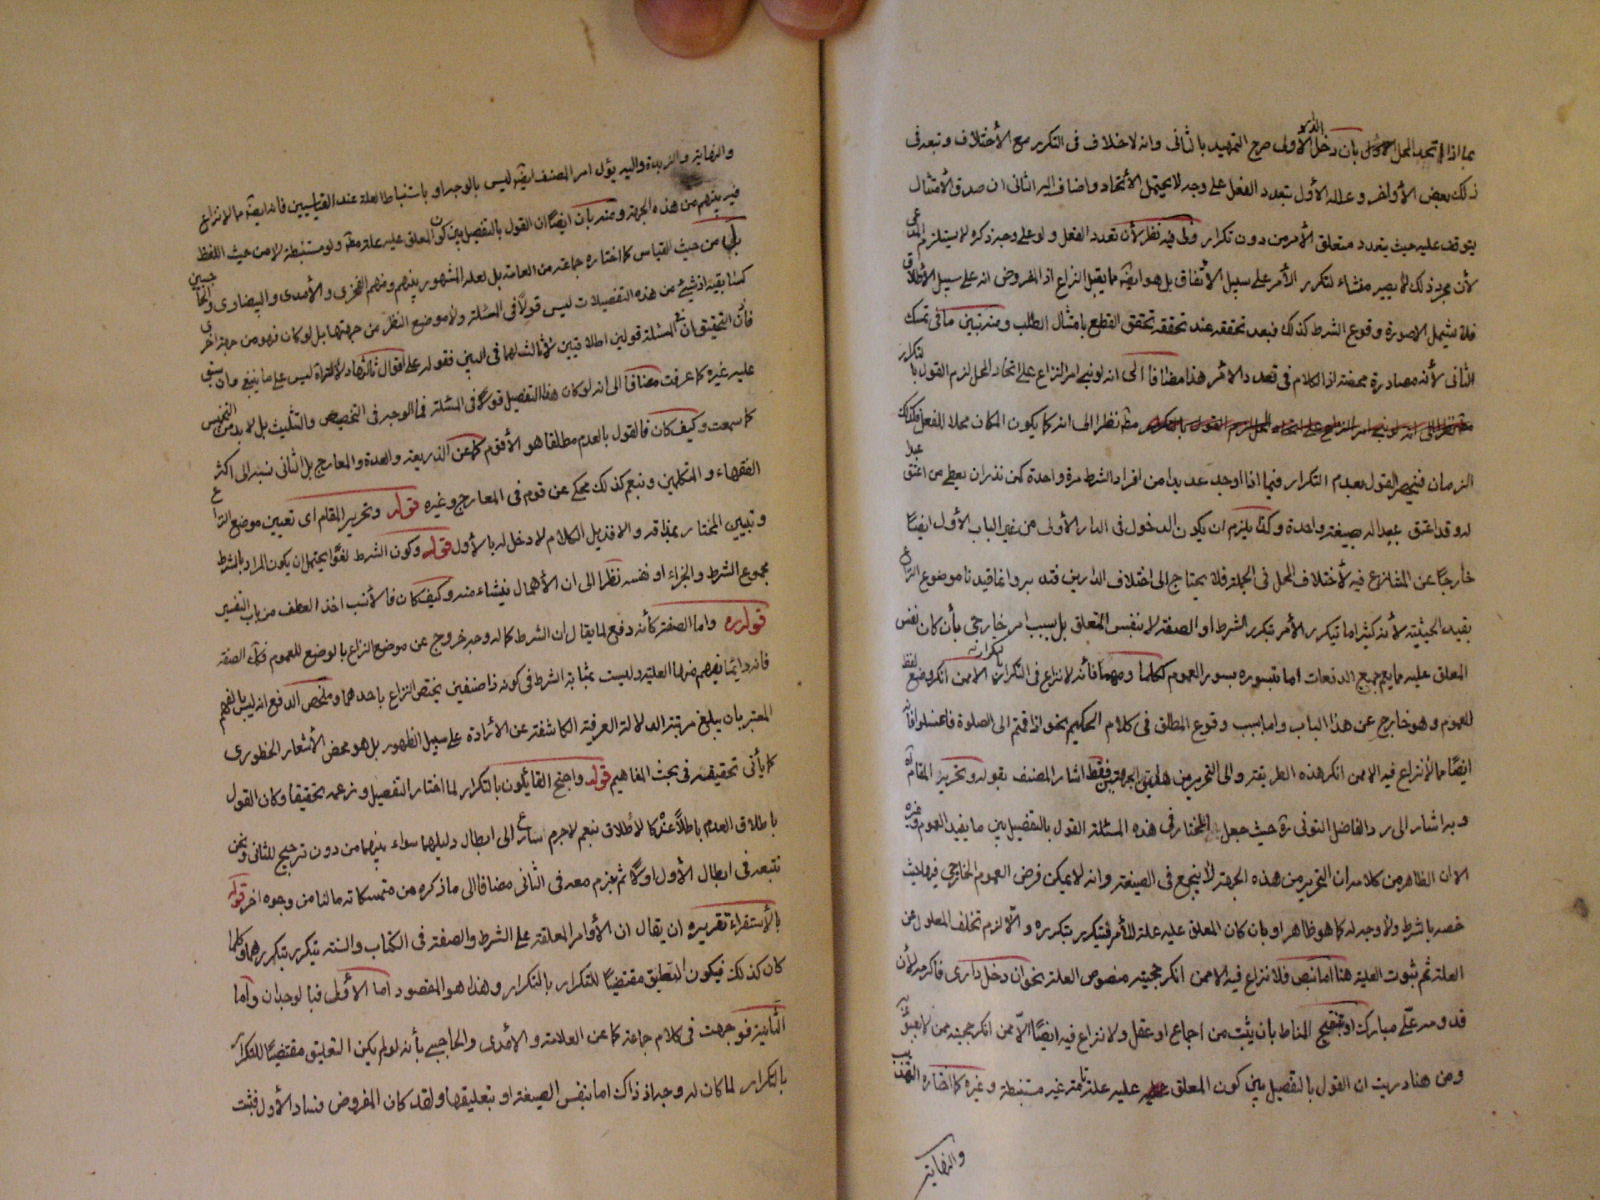 عما اذا اتحد المحل بأن دخل الدار الأولى صرح التمهيد بالثانى وانه لاخلاف فى التكرر مع الأختلاف وتبعه فى
ذلك بعض الأواخر وعلله الأول بتعدد الفعل على وجه لا يحتمل الأتحاد واضاف اليه الثانى ان صدق الأمتثال
يتوقف عليه حيث يتعدد متعلق الأمر من دون تكرار وفيه نظر لأن تعدد الفعل ولو على وجه ذكره لا يستلزم المدعى
لأن مجرد ذلك لا يصير منشاء لتكرر الأمر على سبيل الأتفاق بل هو ايضا مما يقبل النزاع اذ المفروض انه على سبيل الأطلاق
فلا يشمل الا صورة وقوع الشرط كذلك فبعد تحققه عند تحققه تحقق القطع بامتثال الطلب ومنه تبين ما فى تمسك
الثانى لأنه مصادرة محضة اذ الكلام فى تعدد الأمر هذا مضافا الى انه لو بنى امر النزاع على اتحاد المحل لزم القول بالتكرار
نظرا الى انه كما يكون المكان محلا للفعل فكذلك
الزمان فينحصر القول بعدم التكرار فيما اذا اوجد عديدا من افراد الشرط مرة واحدة كمن نذر ان يعطى من اعتق عبدا
له وقد اعتق عبيدا له بصيغة واحدة وكذا يلزم ان يكون الدخول فى الدار الأولى من الباب الأول ايضا
خارجا عن المتنازع فيه لأختلاف المحل فى الجملة فلا يحتاج الى اختلاف الدارين فتدبر وانما قيدنا موضوع النزاع
بقيد الحيثية لأنه كثيرا ما يتكرر الأمر بتكرر الشرط او الصفة لا بنفس المتعلق بل بسبب امر خارجى بأن كان نفس
المعلق عليه مما يعم جميع الدفعات اما بتسوره بسور العموم ككلما ومهما فأنه لا نزاع فى التكرار بتكراره الا ممن انكر وضع لفظ
للعموم وهو خارج عن هذا الباب واما بسبب وقوع المطلق فى كلام الحكيم نحو اذا قمتم الى الصلوة فاغسلوا فانه
ايضا مما لا نزاع فيه الا ممن انكر هذه الطريقة والى التحرير من هاتين الجهتين فقط اشار المصنف بقوله وتحرير المقام اه
وبه اشار الى رد الفاضل التونى ره حيث جعل المختار فى هذه المسئلة القول بالتفصيل بين ما يفيد العموم وغيره
الا ان الظاهر من كلامه ان التحرير من هذه الجهة لا ينجع فى الصيغة وانه لا يمكن فرض العموم الخارجى فيها حيث
خصه بالشرط ولا وجه له كما هو ظاهر او بان كان المعلق عليه علة للأمر فيتكرر بتكرره والا لزم تخلف المعلول عن
العلة ثم ثبوت العلية هنا اما بنص فلا نزاع فيه الا ممن انكر حجية منصوص العلة نحو ان دخل دارى فاكرمه لأن
قدومه على مبارك او بتنقيح المناط بان يثبت من اجماع او عقل ولا نزاع فيه ايضا الا ممن انكر حجيته ممن لا يعبؤ به
ومن هنا دريت ان القول بالتفصيل بين كون المعلق عليه علة تامة غير مستنبطة وغيره كما اختاره التهذيب
والنهاية
والنهاية والزبدة واليه يؤل امر المصنف ايضا ليس بالوجه او باستنباط العلة عند القياسيين فانه ايضا مما لا نزاع
فيه بينهم من هذه الجهة ومنه بان ايضا ان القول بالتفصيل بين كون المعلق عليه علة تامة ولو مستنبطة لا من حيث اللفظ
بل من حيث القياس كما اختاره جماعة من العامة بل لعله المشهور بينهم ومنهم الفخرى والأمدى والبيضاوى والحاجبين
كسابقيه اذ شئ من هذه التفصيلات ليس قولا فى المسئلة ولا موضع النظر من جهتها بل لو كان فهو من جهة اخرى
فأن التحقيق ان المسئلة قولين اطلاقيين لا ثالث لهما فى البين فقوله على اقوال ثالثها دلالة ليس على ما ينبغى وان سبق
عليه غيره كما عرفت مضافا الى انه لو كان هذا التفصيل قولا فى المسئلة فما الوجه فى التخصيص والتثليث بل لا بد من التخميس
كما سمعت وكيف كان فالقول بالعدم مطلقا هو الأقوم كما عن الذريعة والعدة والمعارج بل الثانى نسبه الى اكثر
الفقهاء والمتكلمين وتبعه كذلك محكى عن قوم فى المعارج وغيره قوله وتحرير المقام اى تعيين موضع النزاع
وتبيين المختار بمذاقه والا فذيل الكلام لا دخل له بالأول قوله وكون الشرط لغوا يحتمل ان يكون المراد بالشرط
مجموع الشرط والجزاء او نفسه نظرا الى ان الأهمال ينشاء منه وكيف كان فالأنسب اخذ العطف من باب التفسير
قوله ره واما الصفة كأنه دفع لما يقال ان الشرط كما له وجه خروج عن موضع النزاع بالوضع للعموم فكك الصفة
فانه دائما يفهم منها العلية وليست بمثابة الشرط فى كونه ذا صنفين يختص النزاع باحدهما وملخص الدفع انه ليس الفهم
المعتبر بان يبلغ مرتبة الدلالة العرفية الكاشفة عن الأرادة على سبيل الظهور بل هو محض الأشعار الخطورى
كما يأتى تحقيقه فى بحث المفاهيم قوله واحتج القائلون بالتكرار لما اختار التفصيل وزعمه تحقيقا وكان القول
باطلاق العدم باطلا عنده كالأطلاق بنعم لاجرم سارع الى ابطال دليلهما سواء بينهما من دون ترجيح للثانى ونحن
نتبعه فى ابطال الأول اولا ثم نلزم معه فى الثانى مضافا الى ما ذكره من متمسكاته ما لنا من وجوه اخر قوله
بالأستقراء تقريره ان يقال ان الأوامر المعلقة على الشرط والصفة فى الكتاب والسنة يتكرر بتكررهما وكلما
كان كذلك فيكون التعليق مقتضيا للتكرار بالتكرار وهذا هو المقصود اما الأولى فبالوجدان واما
الثانية فوجهت فى كلام جماعة كما عن العلامة والأمدى والحاجبى بأنه لو لم يكن التعليق مقتضيا للتكرار
بالتكرار لما كان له وجه اذ ذاك اما بنفس الصيغة او بتعليقها ولقد كان المفروض فساد الأول فثبت